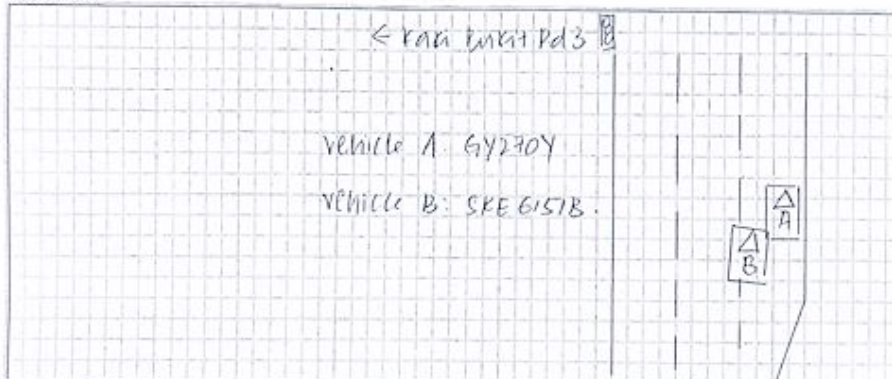 ← Kaki Bukit Rd 3
Vehicle A: GY270Y
Vehicle B: SKE6151B.
A
B